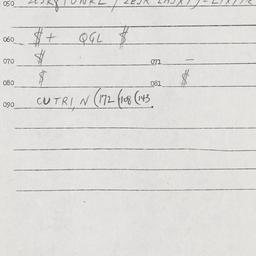 050
060 $ + QGL $
070 $ 071 —
080 $ 081 $
090 CUTRI, N (172 (108 (143